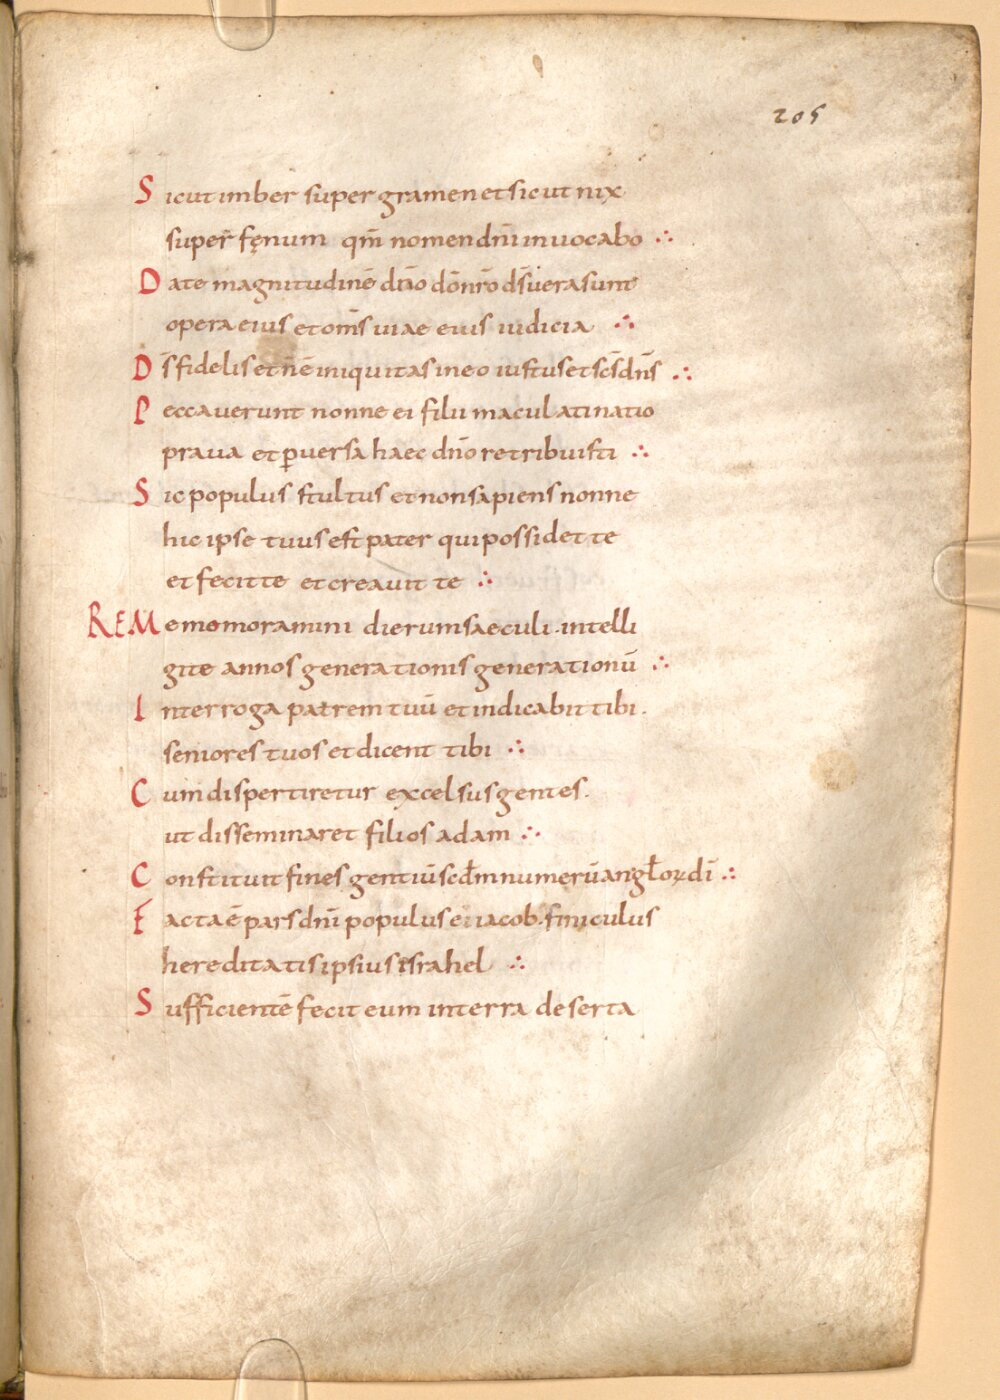 205
Sicut imber super gramen et sicut nix
super fęnum qm̄ nomen dn̄i inuocabo ∴
Date magnitudinē dn̄o dōnr̄o d̄s uera sunt
opera eius et om̄s uiae eius iudicia ∴
D̄s fidelis et n̄ ē iniquitas in eo iustus et sc̄s dn̄s ∴
Peccauerunt non ei filii maculati natio
praua et ꝑuersa haec dn̄o retribuisti ∴
Sic populus stultus et non sapiens nonne
hic ipse tuus est pater qui possidet te
et fecit te et creauit te ∴
REMememoramini dierum saeculi. intelli
gite annos generationis generationū ∴
Interroga patrem tuū et indicabit tibi.
seniores tuos et dicent tibi ∴
Cum dispertiretur excelsus gentes.
ut disseminaret filios adam ∴
Constituit fines gentiū scd̄m numerū angł̄oꝝ dī ∴
Facta ē pars dn̄i populus ei iacob. finiculus
hereditatis ipsius israhel ∴
Sufficientē fecit eum in terra deserta